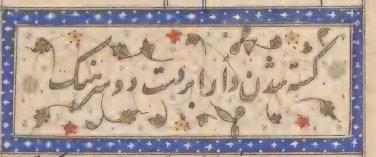 کشته شدن دارا بر دست دو سرهنگ